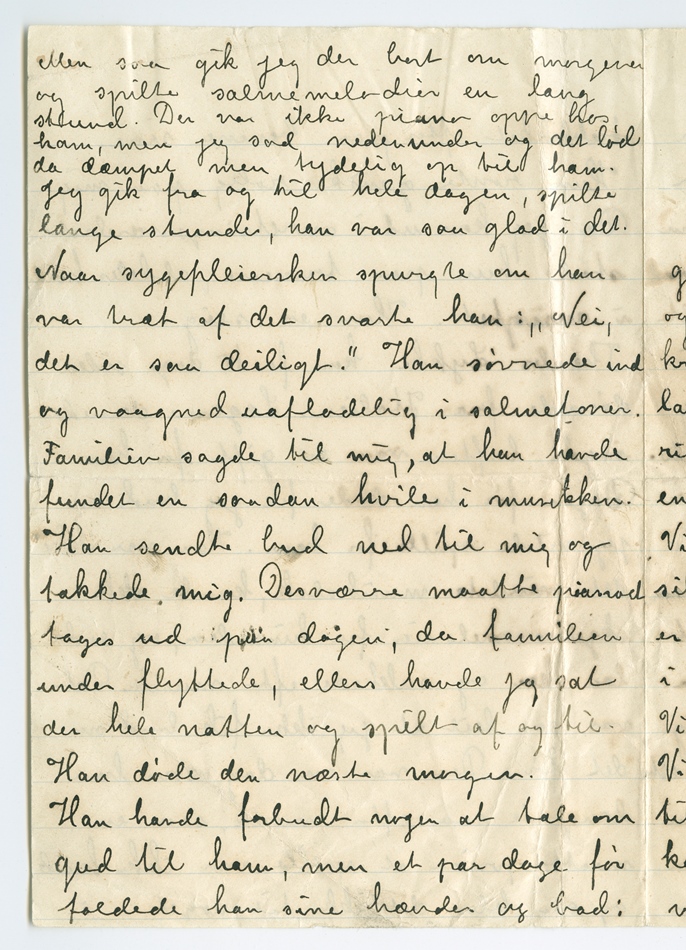 Men saa gik jeg der bort om morgenen
og spilte salmemelodier en lang
stund. Der var ikke piano oppe hos
ham, men jeg sad nedenunder og det lød
da dæmpet men tydelig op til ham.
Jeg gik fra og til hele dagen, spilte
lange stunder, han var saa glad i det.
Naar sygepleiersken spurgte om han
var træt af det svarte han: „Nei,
det er saa deiligt." Han søvnede ind
og vaagned uafladelig i salmetoner.
Familien sagde til mig, at han havde
fundet en saadan hvile i musikken.
Han sendte bud ned til mig og
takkede mig. Desværre maatte pianoet
tages ud paa dagen, da familien
under flyttede, ellers havde jeg sat
der hele natten og spilt af og til.
Han døde den næste morgen.
Han havde forbudt nogen at tale om
gud til ham, men et par dage før
foldede han sine hænder og bad:
g
og
kr
la
ri
en
Vi
si
er
i
Vi
Vi
til
ke